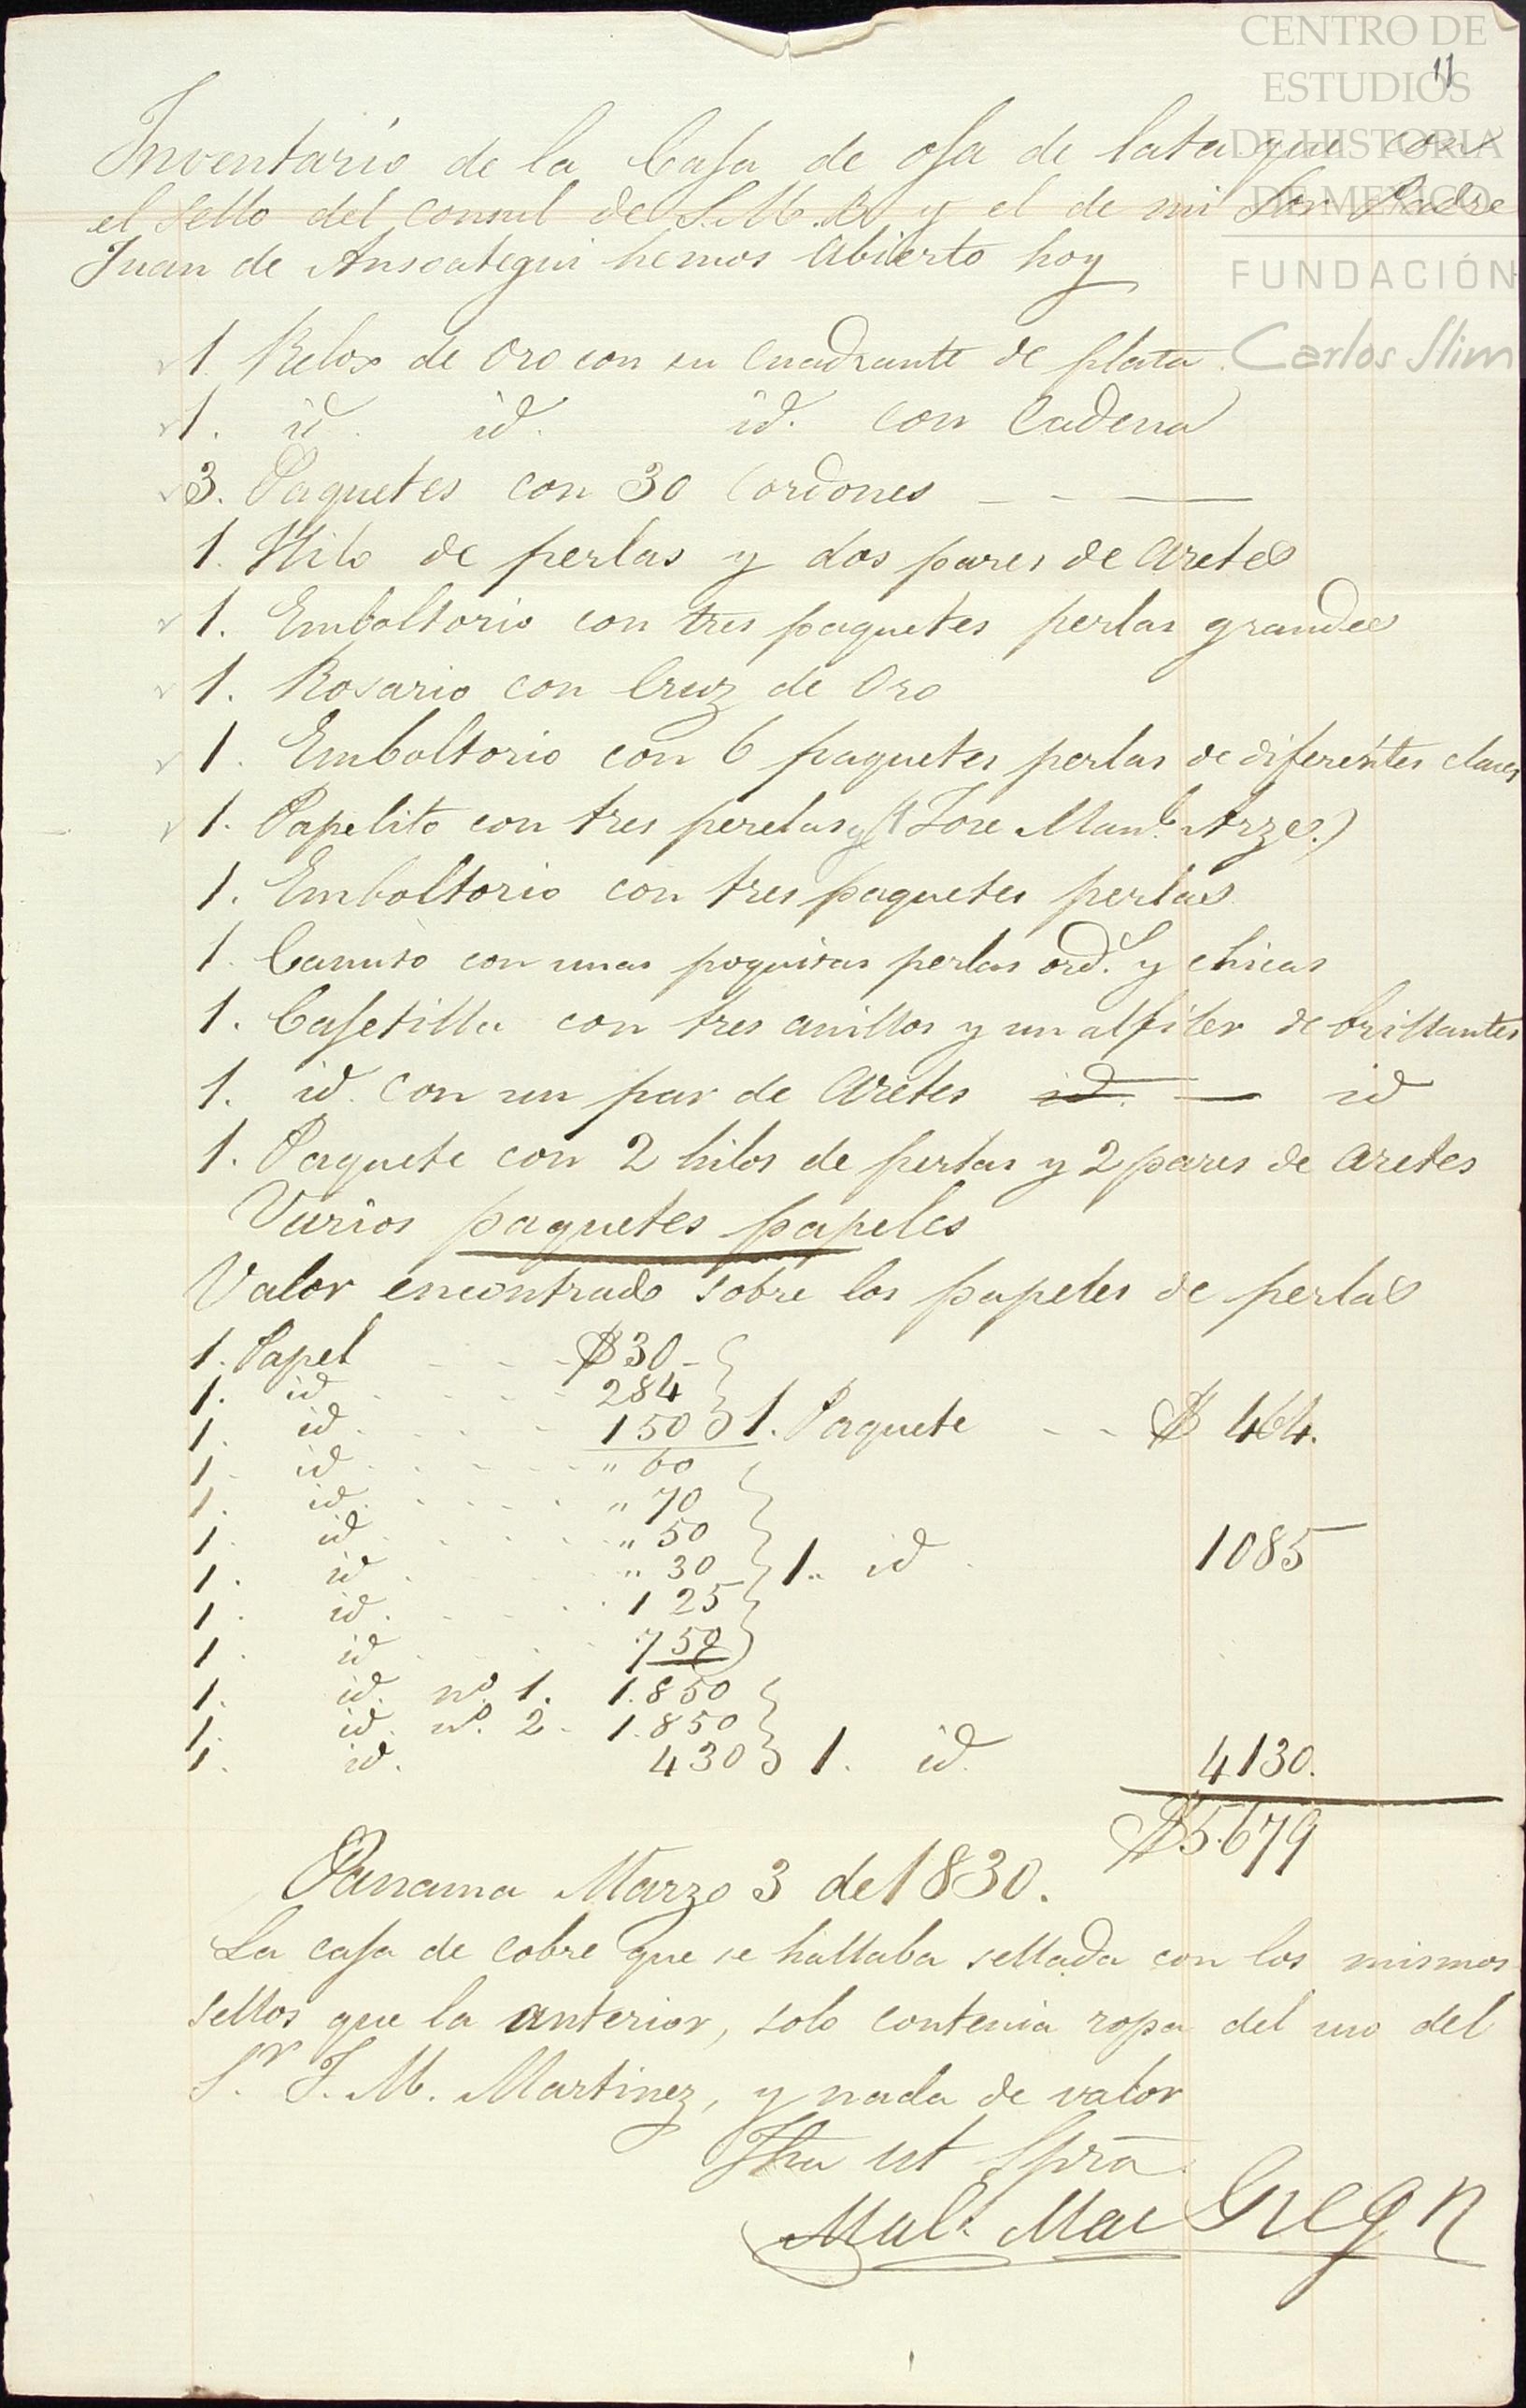 CENTRO DE
ESTUDIOS
DE HISTORIA
DE MEXICO
FUNDACIÓN
Carlos Slim
11
Inventario de la Caja de oja de lata que con
el sello del consul de S.M.B. y el de mi Sor Padre
Juan de Ansoategui hemos abierto hoy
1. Relox de oro con su cuadrante de plata.
1. id. id. id. con Cadena
3. Paquetes con 30 Cordones - - —
1. Hilo de perlas y dos pares de aretes
1. Emboltorio con tres paquetes perlas grandes
1. Rosario con Cruz de Oro
1. Emboltorio con 6 paquetes perlas de diferentes clases
1. Papelito con tres perelas y (Jose Manl. Arze.)
1. Emboltorio con tres paquetes perlas
1. Canuto con unas poquitas perlas ords. y chicas
1. Cajetilla con tres anillos y un alfiler de brillantes
1. id. con un par de aretes id. — id
1. Paquete con 2 hilos de perlas y 2 pares de aretes
Varios paquetes papeles
Valor encontrado sobre los papeles de perlas
1. Papel - - - $30 -
1. id - - - - 284
1. id. - - - 150 1. Paquete - - $ 464.
1. id - - - " 60
1. id. - - - " 70
1. id - - - " 50
1. id - - - " 30 1. id. 1085
1. id. - - - 125
1. id - - - 750
1. id. no. 1. 1.850
1. id. no. 2 - 1.850
1. id. 430 1. id. 4130.
$5.679
Panama Marzo 3 de 1830.
La caja de cobre que se hallaba sellada con los mismos
sellos que la anterior, solo contenia ropa del uso del
Sr. J. M. Martinez, y nada de valor
Fha ut Spra
Malm. Mac Gregor